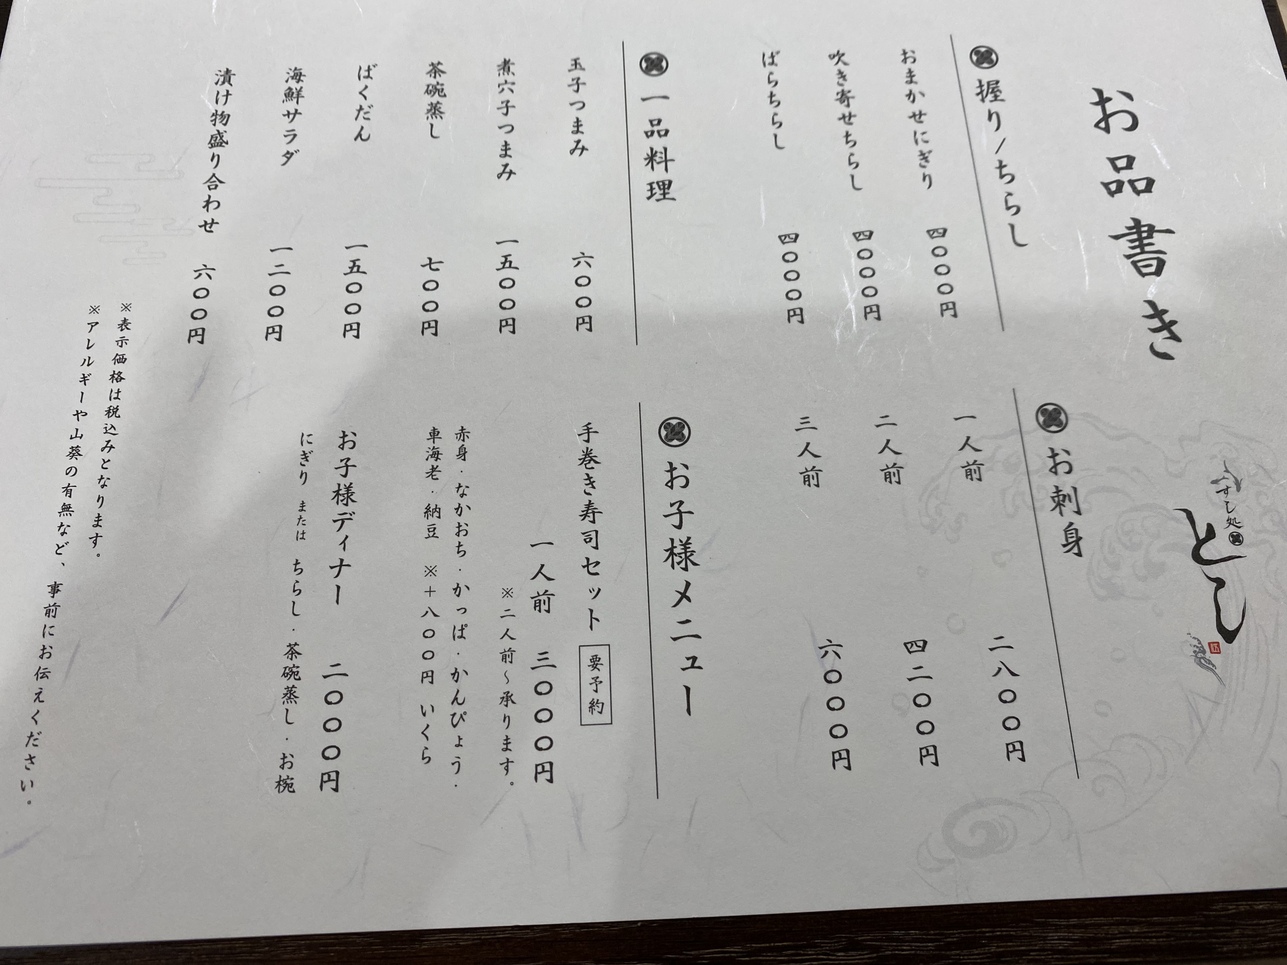 お品書き
すし処
とし
握り/ちらし
おまかせにぎり 四〇〇〇円
吹き寄せちらし 四〇〇〇円
ばらちらし 四〇〇〇円
お刺身
一人前 二八〇〇円
二人前 四二〇〇円
三人前 六〇〇〇円
一品料理
玉子つまみ 六〇〇円
煮穴子つまみ 一五〇〇円
茶碗蒸し 七〇〇円
ばくだん 一五〇〇円
海鮮サラダ 一二〇〇円
漬け物盛り合わせ 六〇〇円
お子様メニュー
手巻き寿司セット 要予約
一人前 三〇〇〇円
※二人前〜承ります。
赤身・なかおち・かっぱ・かんぴょう・
車海老・納豆 ※+八〇〇円 いくら
お子様ディナー 二〇〇〇円
にぎり または ちらし・茶碗蒸し・お椀
※表示価格は税込みとなります。
※アレルギーや山葵の有無など、事前にお伝えください。